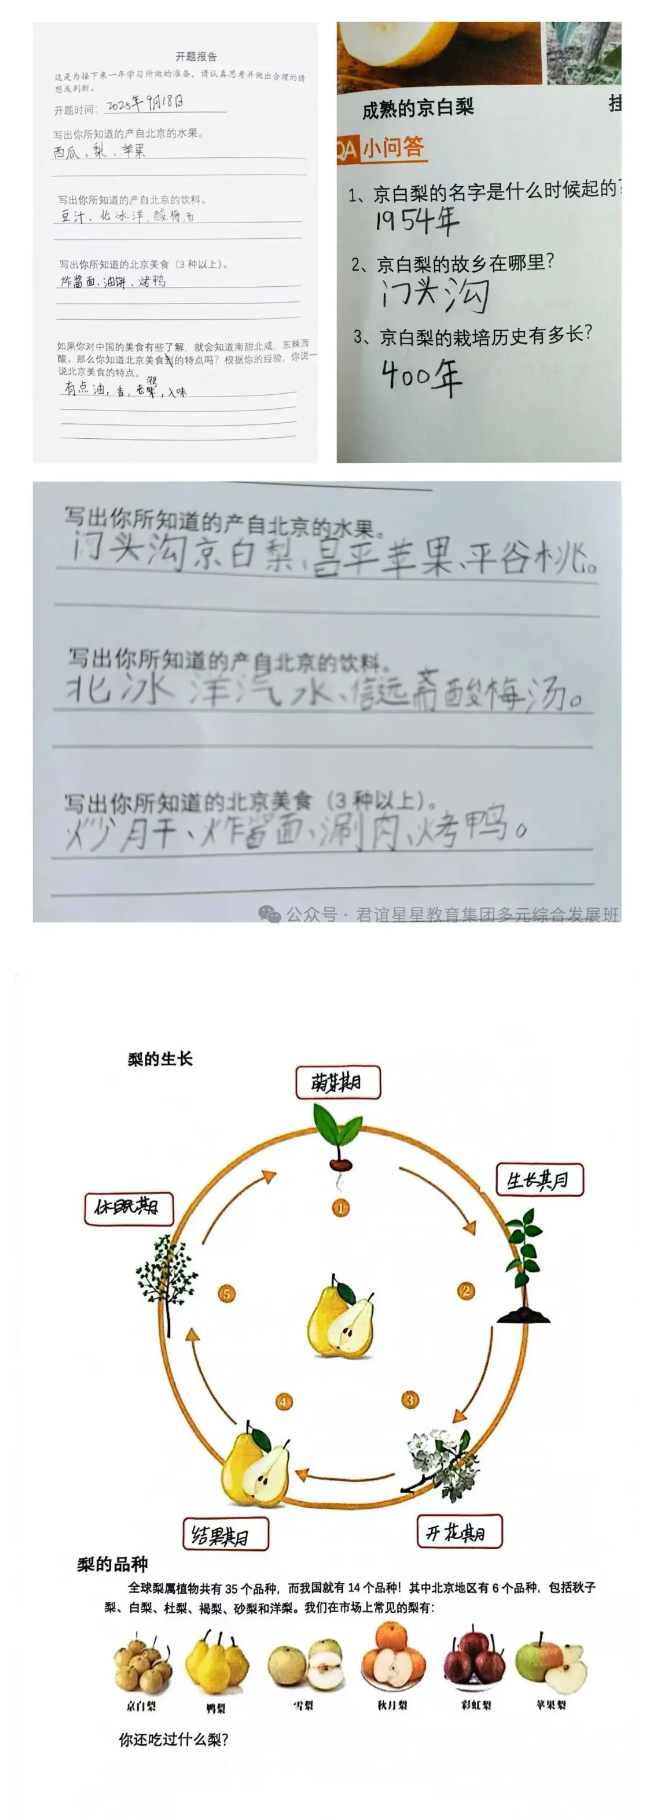 开题报告
这是为接下来一年学习所做的准备，请认真思考并做出合理的猜
想或判断。
开题时间：2025年9月18日
写出你所知道的产自北京的水果。
西瓜、梨、苹果
写出你所知道的产自北京的饮料。
豆汁、北冰洋、酸梅汤
写出你所知道的北京美食（3种以上）。
炸酱面、油饼、烤鸭
如果你对中国的美食有些了解，就会知道南甜北咸，东辣西
酸。那么你知道北京美食的特点吗？根据你的经验，你说一
说北京美食的特点。
有点油，香，入味
成熟的京白梨
挂
QA 小问答
1、京白梨的名字是什么时候起的？
1954年
2、京白梨的故乡在哪里？
门头沟
3、京白梨的栽培历史有多长？
400年
写出你所知道的产自北京的水果。
门头沟京白梨、昌平苹果、平谷桃。
写出你所知道的产自北京的饮料。
北冰洋汽水、信远斋酸梅汤。
写出你所知道的北京美食（3种以上）。
炒肝、炸酱面、涮肉、烤鸭。
公众号·君谊星星教育集团多元综合发展班
梨的生长
萌芽期
生长期
休眠期
1
2
5
4
3
结果期
开花期
梨的品种
全球梨属植物共有35个品种，而我国就有14个品种！其中北京地区有6个品种，包括秋子
梨、白梨、杜梨、褐梨、砂梨和洋梨。我们在市场上常见的梨有：
京白梨 鸭梨 雪梨 秋月梨 彩虹梨 苹果梨
你还吃过什么梨？